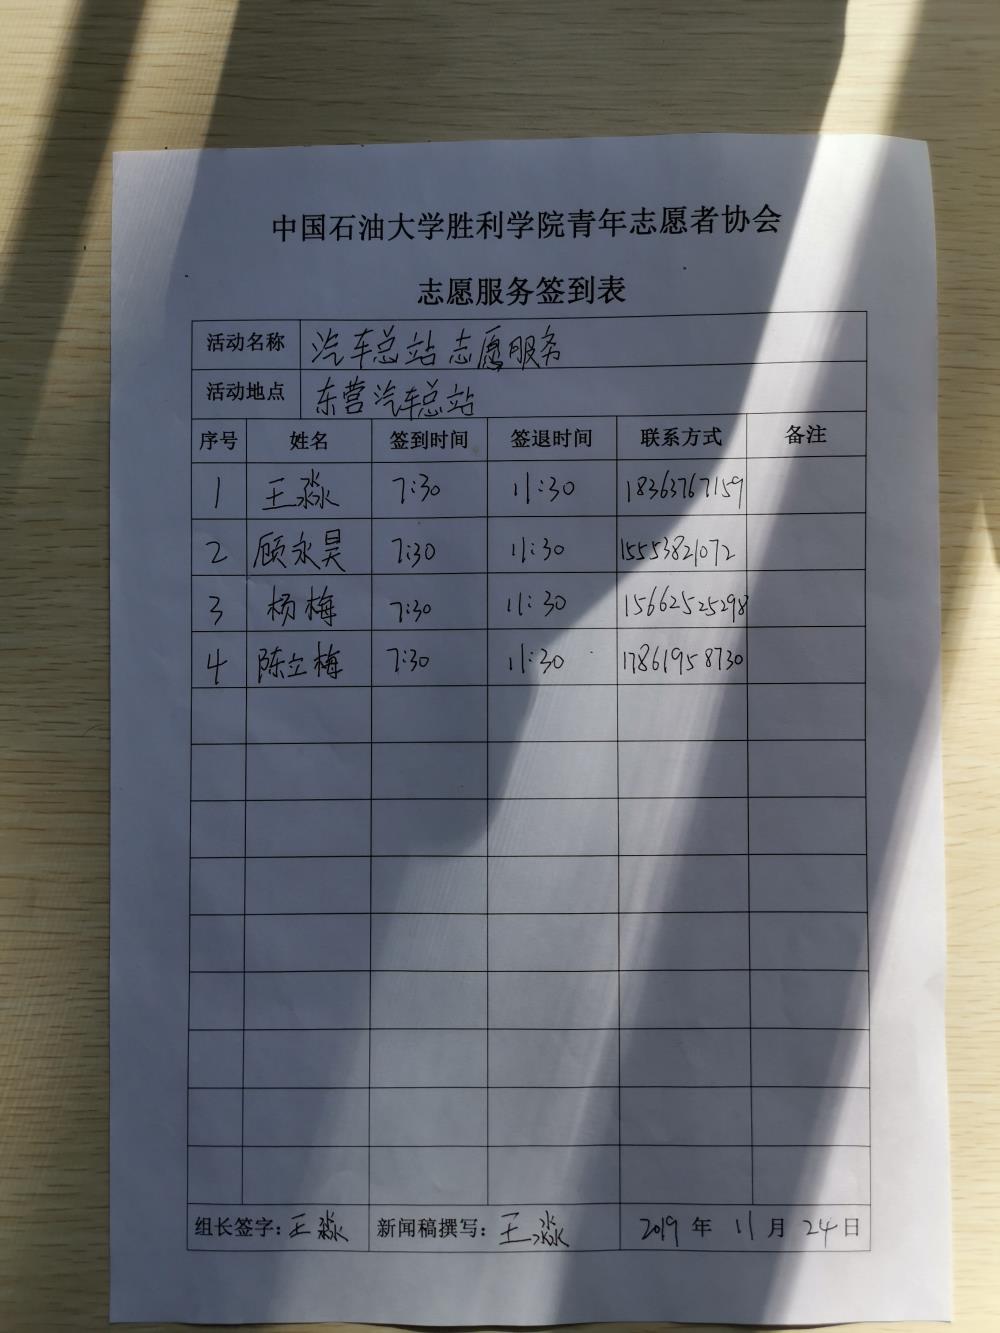 中国石油大学胜利学院青年志愿者协会
志愿服务签到表
活动名称 汽车总站志愿服务
活动地点 东营汽车总站
序号 姓名 签到时间 签退时间 联系方式 备注
1 王淼 7:30 11:30 18363767159
2 顾永昊 7:30 11:30 15553821072
3 杨梅 7:30 11:30 15662525298
4 陈立梅 7:30 11:30 17861958730
组长签字:王淼 新闻稿撰写:王淼 2019 年 11 月 24 日